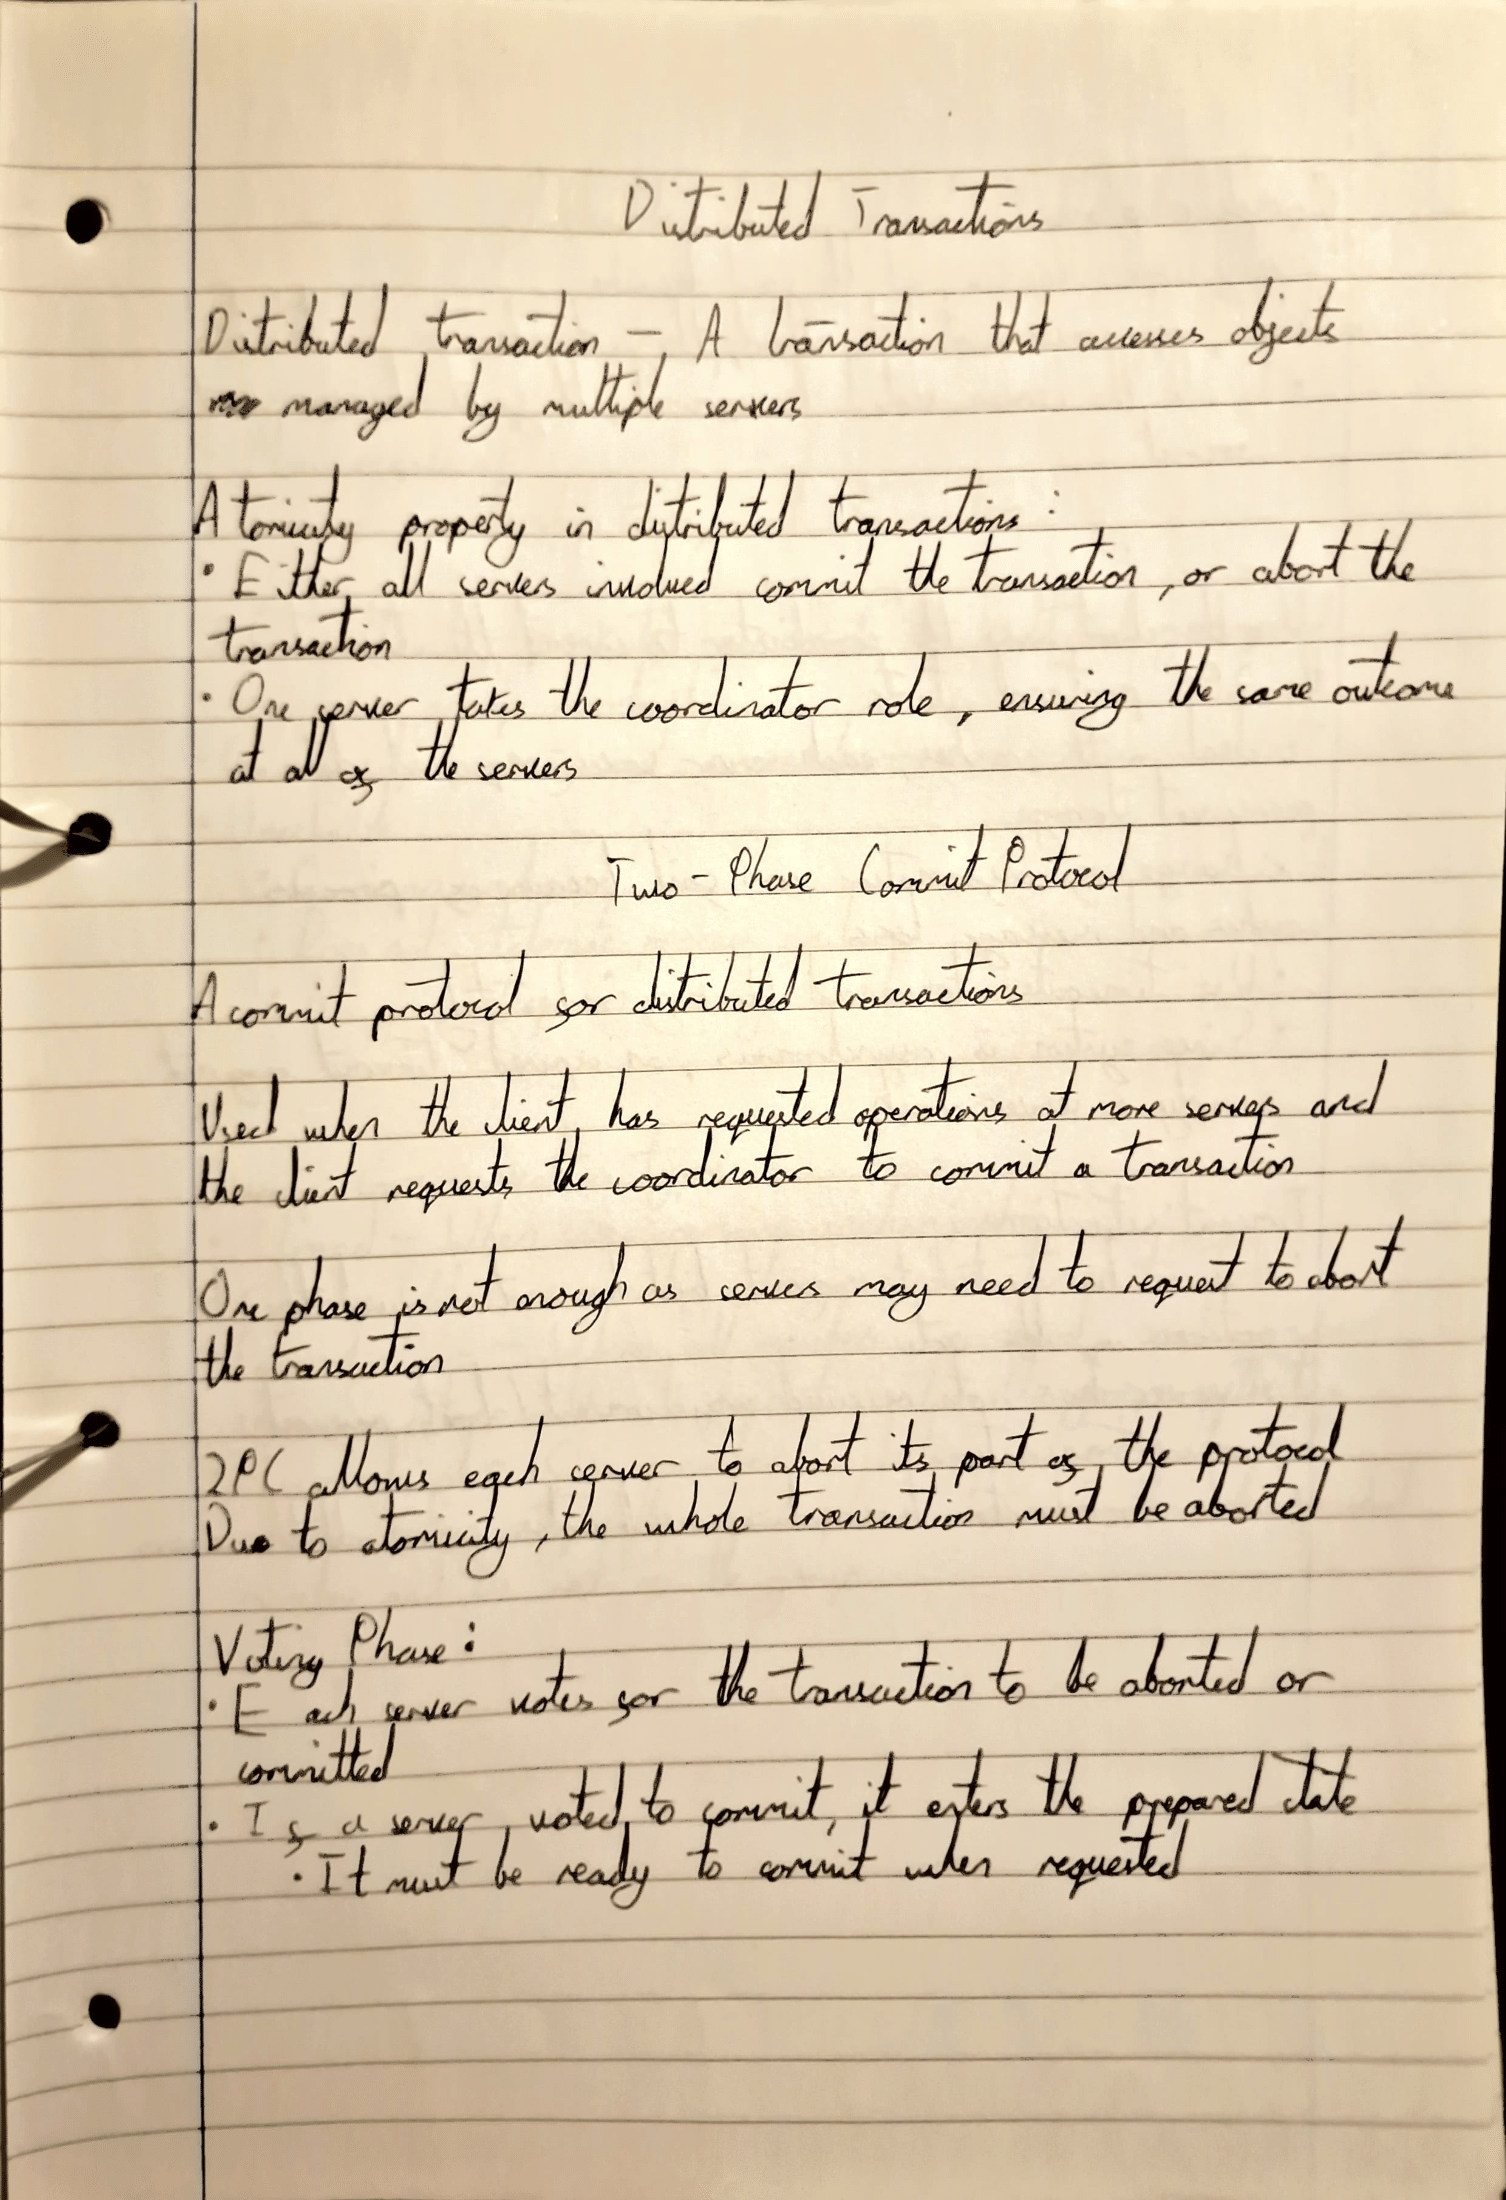 Distributed Transactions
Distributed transaction - A transaction that accesses objects
managed by multiple servers
Atomicity property in distributed transactions:
• Either all servers involved commit the transaction, or abort the
transaction
• One server takes the coordinator role, ensuring the same outcome
at all of the servers
Two-Phase Commit Protocol
A commit protocol for distributed transactions
Used when the client has requested operations at more servers and
the client requests the coordinator to commit a transaction
One phase is not enough as servers may need to request to abort
the transaction
2PC allows each server to abort its part of the protocol
Due to atomicity, the whole transaction must be aborted
Voting Phase:
• Each server votes for the transaction to be aborted or
committed
• If a server voted to commit, it enters the prepared state
• It must be ready to commit when requested